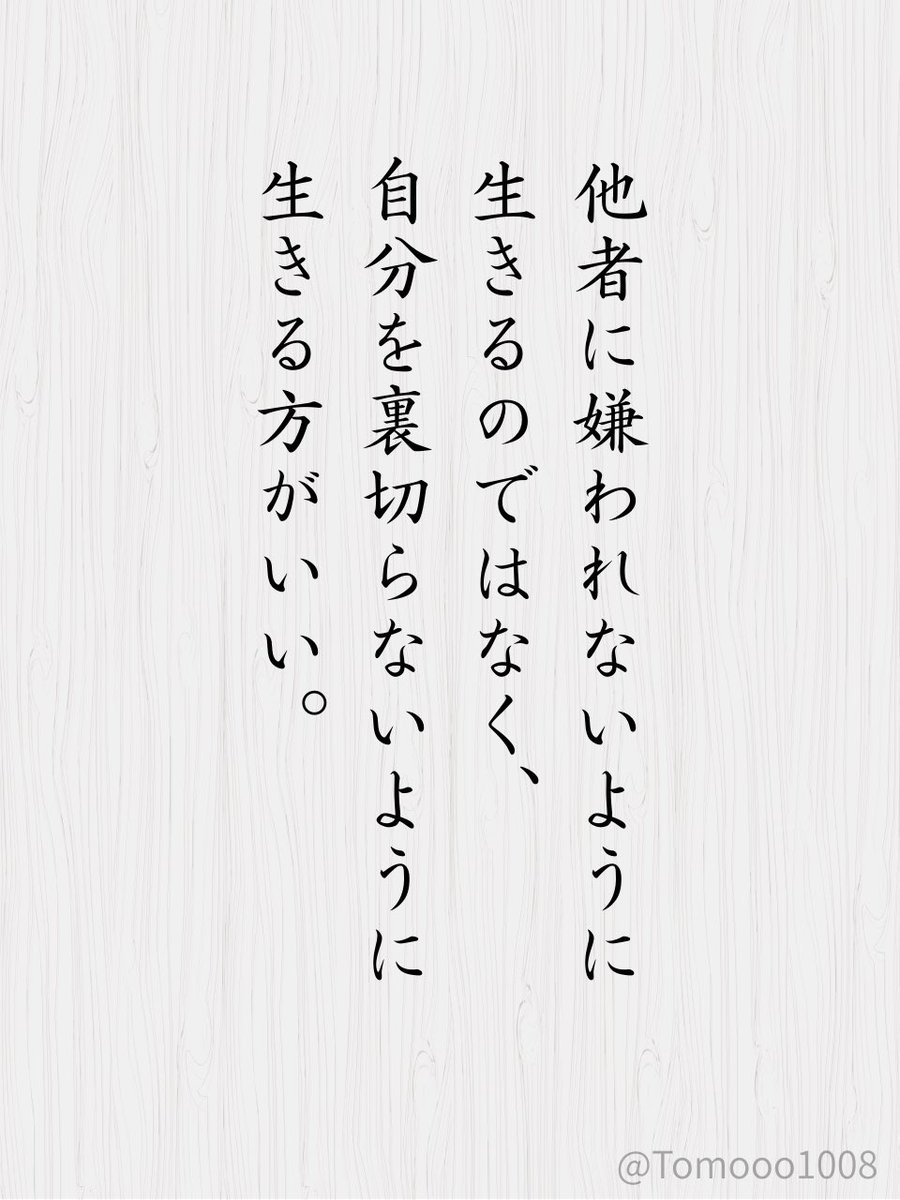 他者に嫌われないように
生きるのではなく、
自分を裏切らないように
生きる方がいい。
@Tomooo1008